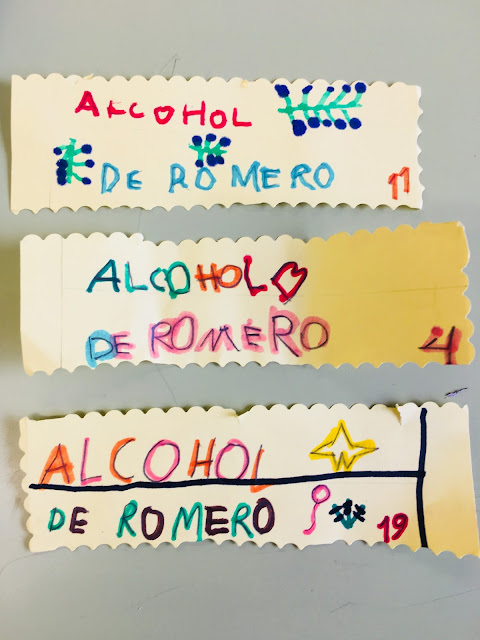 ALCOHOL
DE ROMERO 11
ALCOHOL
DE ROMERO 4
ALCOHOL
DE ROMERO 19